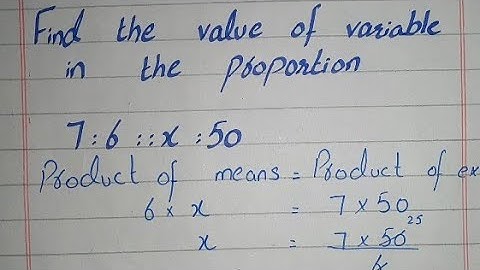 Find the value of variable
in the proportion
7 : 6 : : x : 50
Product of means = Product of ex
6 × x = 7 × 50
x = 7 × 50 25